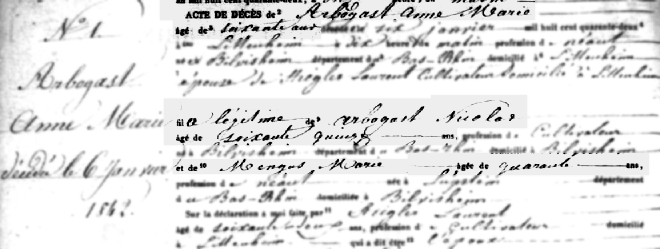 N° 1
Arbogast
Anne Marie
décédé le 6 Janvier
1842
ACTE DE DÉCÈS de Arbogast Anne Marie
âgé de soixante ans décédé le six janvier mil huit cent quarante-deux
à Littenheim dix heures du matin profession de néant
né à Bilvisheim département du Bas-Rhin domicilié à Littenheim
épouse de Laurent Cultivateur domicilié à Littenheim
fille légitime de Arbogast Nicolas
âgé de soixante quinze ans, profession de Cultivateur
à Bilvisheim département du Bas-Rhin domicilié à Bilvisheim
et de Mengus Marie âgée de quarante ans,
profession de néant née à département
du Bas-Rhin domiciliée à Bilvisheim
Sur la déclaration à moi faite par Laurent
âgé de soixante deux ans, profession de Cultivateur domicilié
à Littenheim qui a dit être l'époux